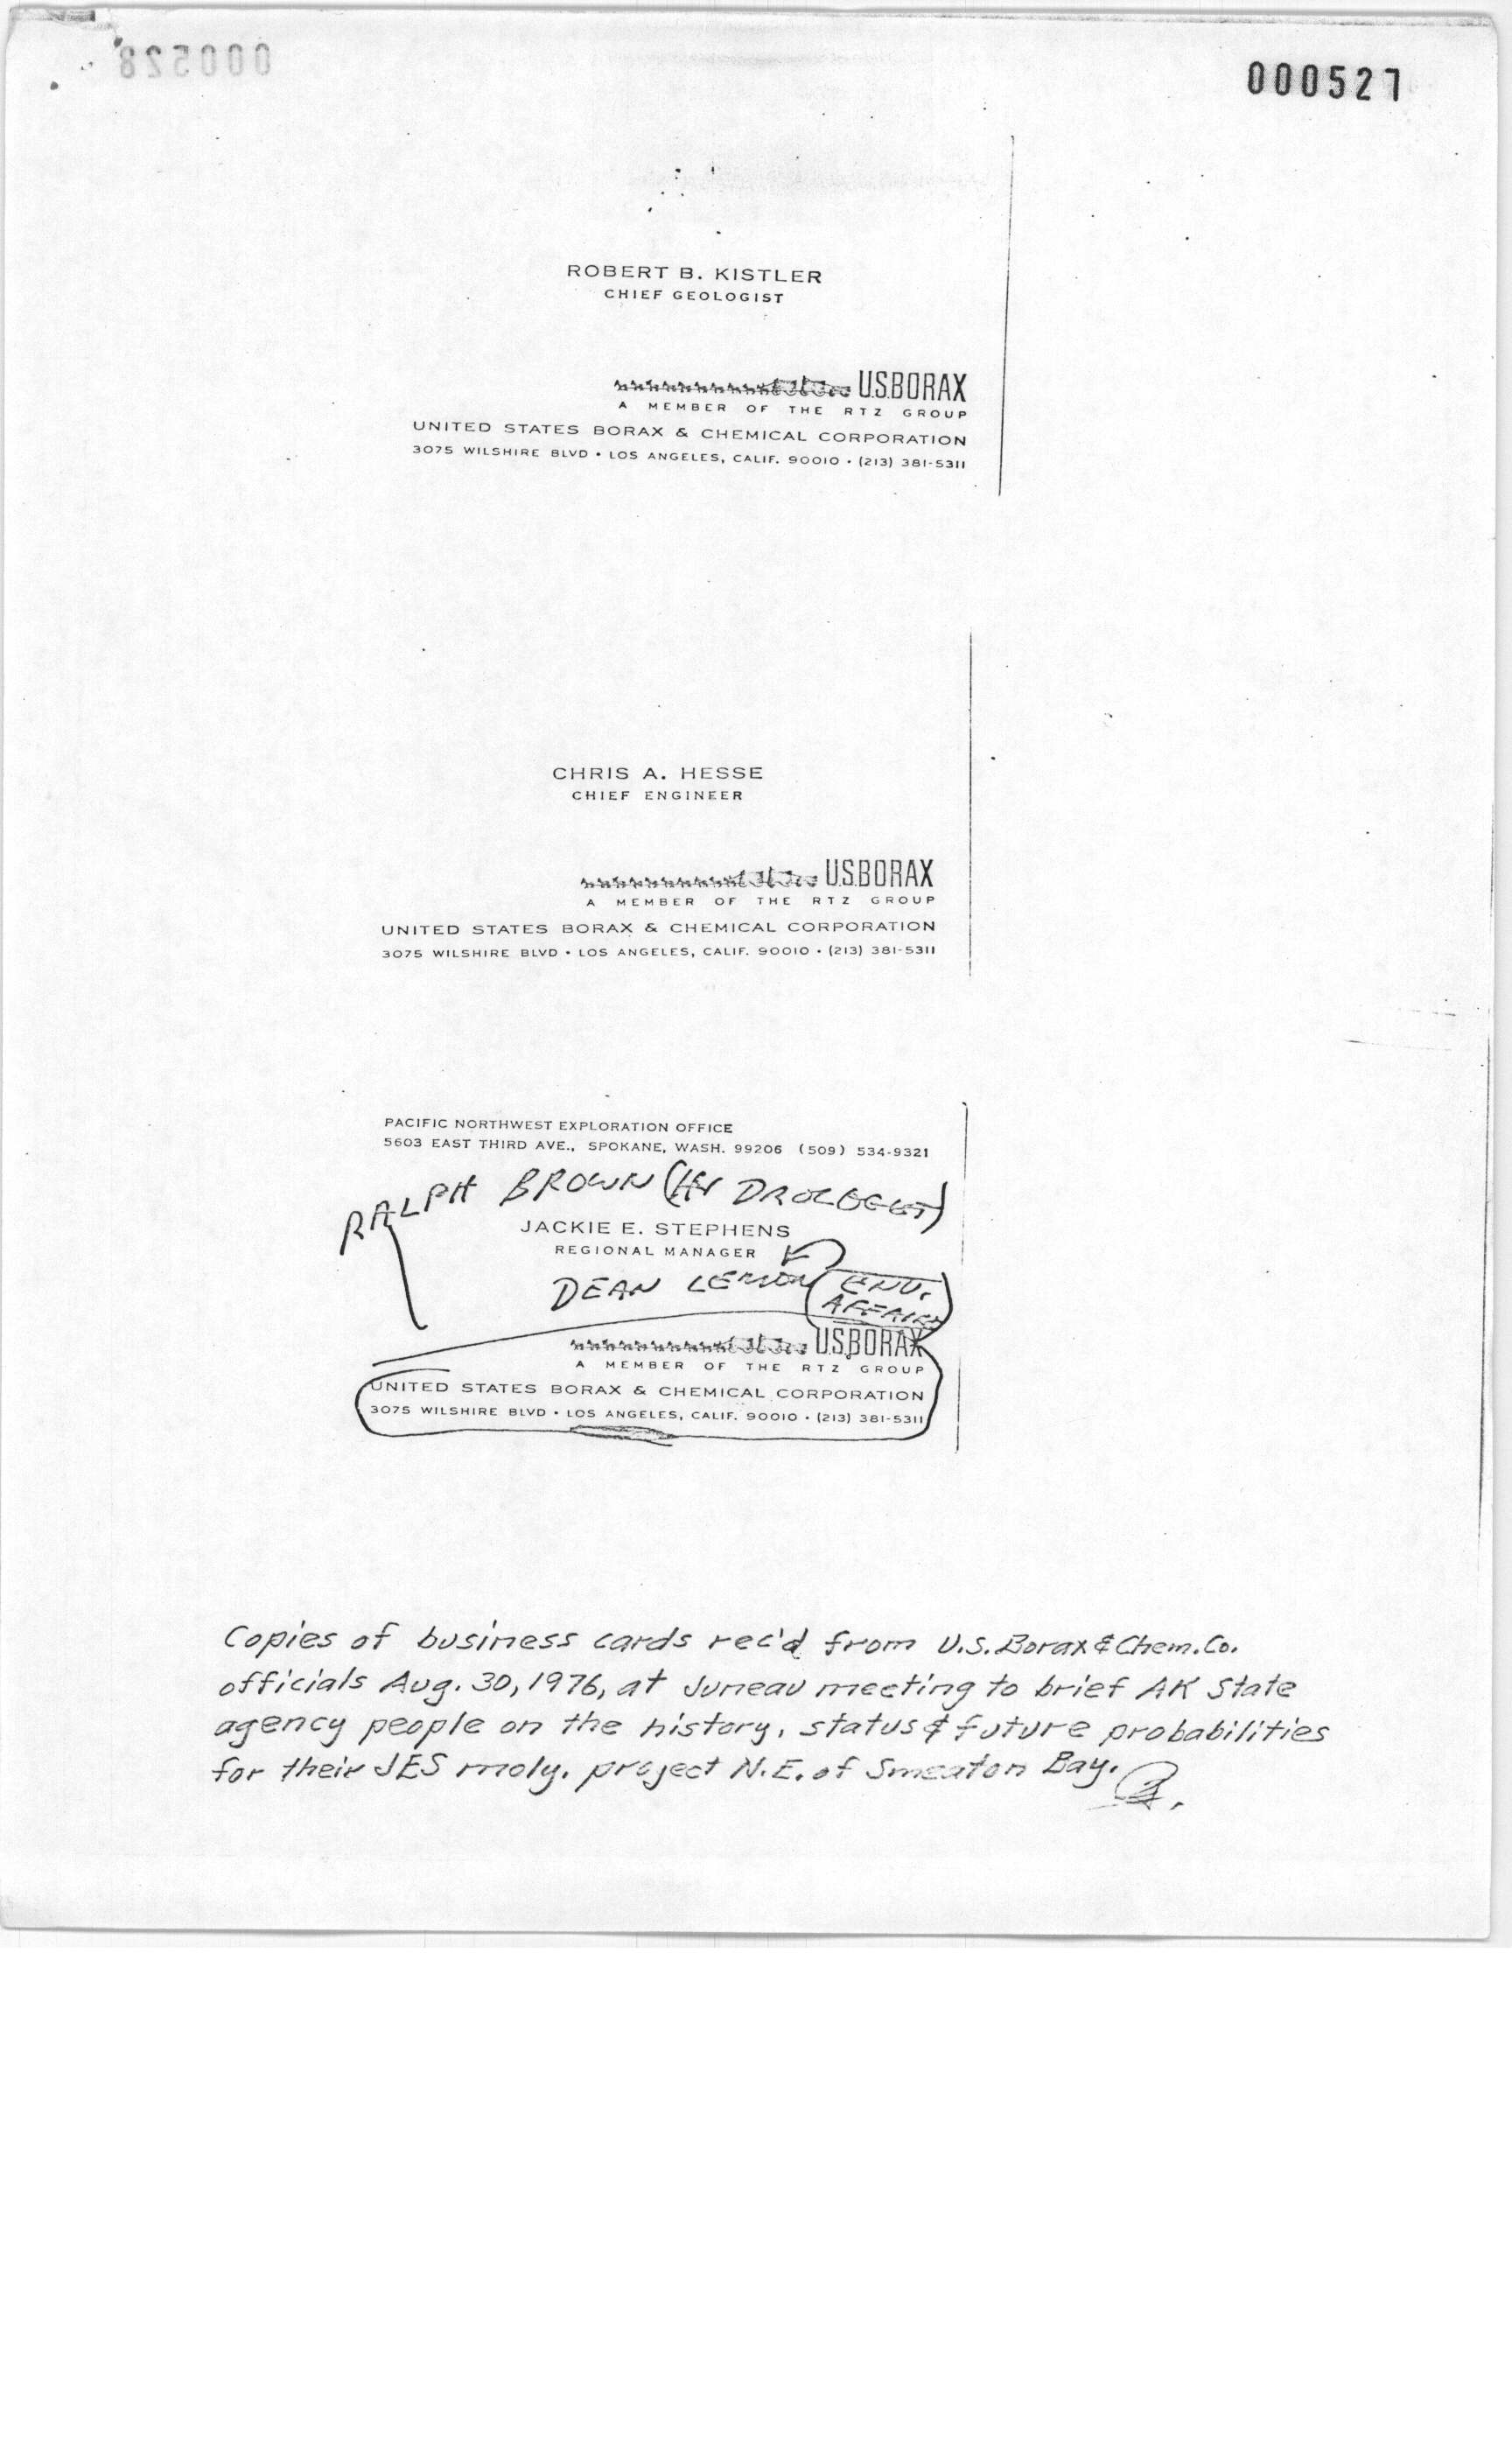 000528
000527
ROBERT B. KISTLER
CHIEF GEOLOGIST
U.S.BORAX
A MEMBER OF THE RTZ GROUP
UNITED STATES BORAX & CHEMICAL CORPORATION
3075 WILSHIRE BLVD • LOS ANGELES, CALIF. 90010 • (213) 381-5311
CHRIS A. HESSE
CHIEF ENGINEER
U.S.BORAX
A MEMBER OF THE RTZ GROUP
UNITED STATES BORAX & CHEMICAL CORPORATION
3075 WILSHIRE BLVD • LOS ANGELES, CALIF. 90010 • (213) 381-5311
PACIFIC NORTHWEST EXPLORATION OFFICE
5603 EAST THIRD AVE., SPOKANE, WASH. 99206 (509) 534-9321
RALPH BROWN (HYDROLOGIST)
JACKIE E. STEPHENS
REGIONAL MANAGER
DEAN (ENV.
AFFAIRS)
U.S.BORAX
A MEMBER OF THE RTZ GROUP
UNITED STATES BORAX & CHEMICAL CORPORATION
3075 WILSHIRE BLVD • LOS ANGELES, CALIF. 90010 • (213) 381-5311
Copies of business cards rec'd from U.S. Borax & Chem. Co.
officials Aug. 30, 1976, at Juneau meeting to brief AK State
agency people on the history, status & future probabilities
for their JES moly. project N.E. of Smeaton Bay.